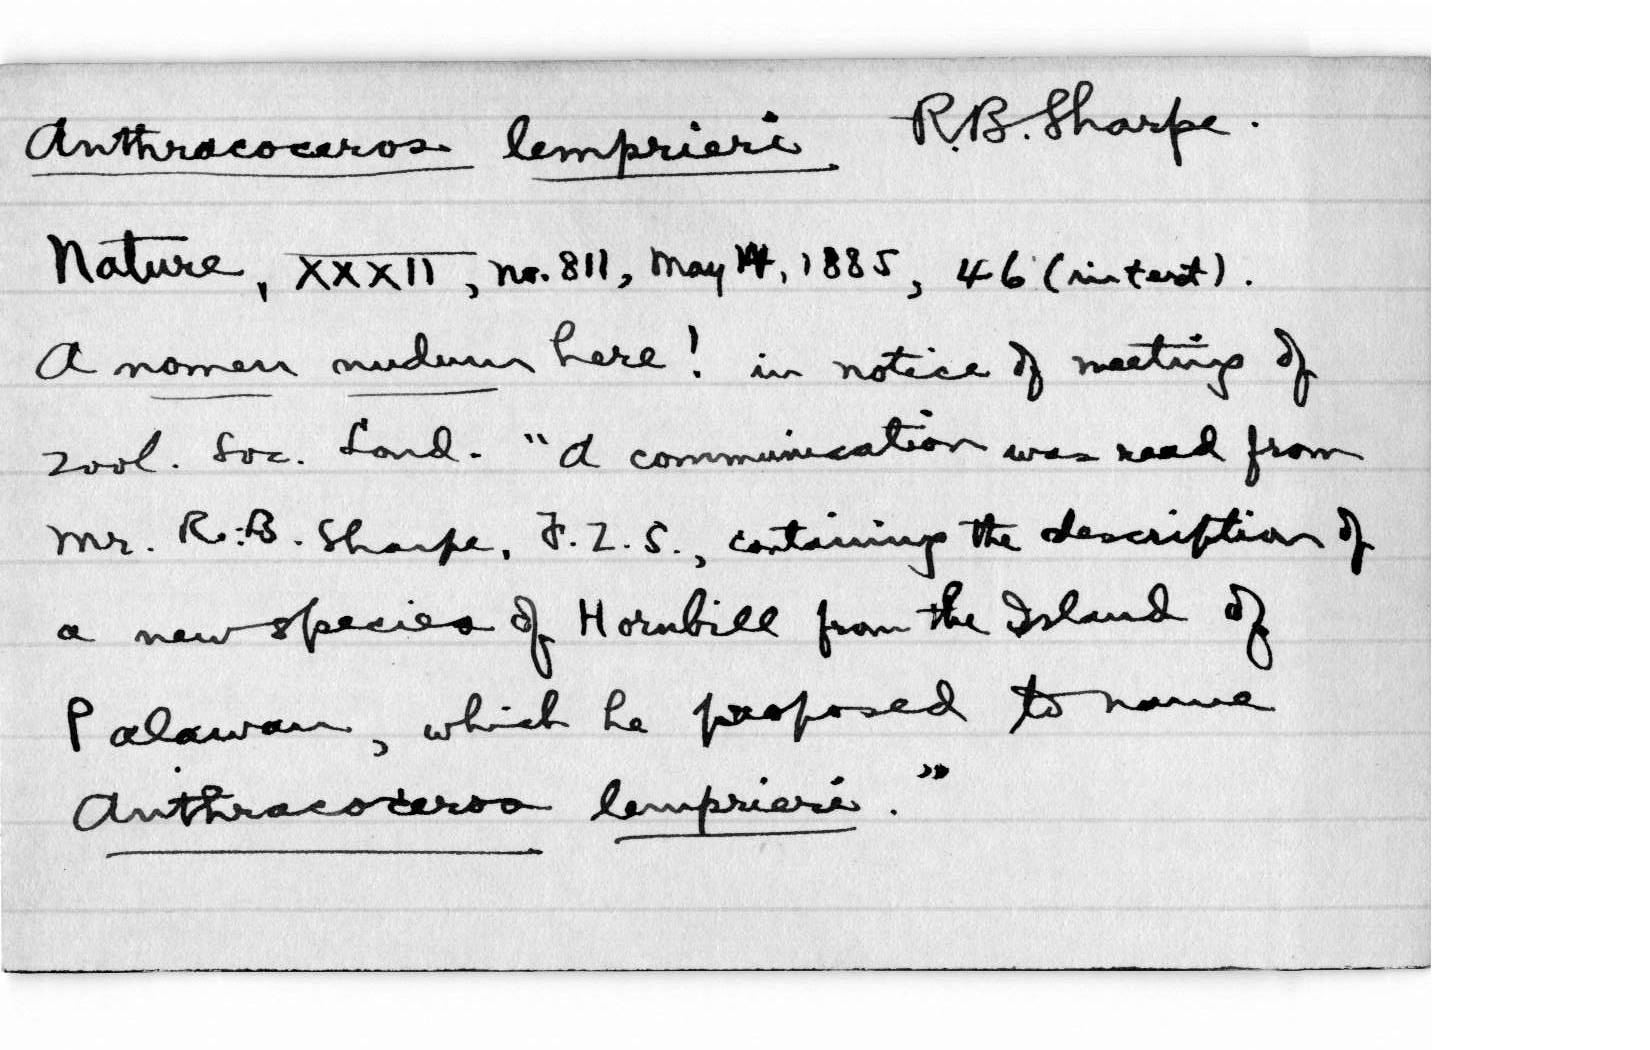 Anthracoceros lemprieri R.B. Sharpe.
Nature, XXXII, no. 811, May 14, 1885, 46 (in text).
A nomen nudum here! in notice of meeting of
Zool. Soc. Lond. "A communication was read from
Mr. R.B. Sharpe, F.Z.S., containing the description of
a new species of Hornbill from the Island of
Palawan, which he proposed to name
Anthracoceros lemprieri."